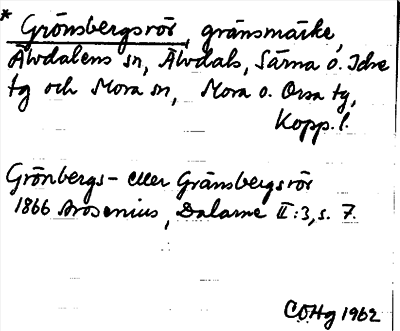 * Grönsbergsrör, gränsmärke,
Älvdalens sn, Älvdals, Särna o. Idre
tg och Mora sn, Mora o. Orsa tg,
Kopp. l.
Grönbergs- eller Gränsbergsrör
1866 Arosenius, Dalarne II:3, s. 7.
C.O.Hg 1962